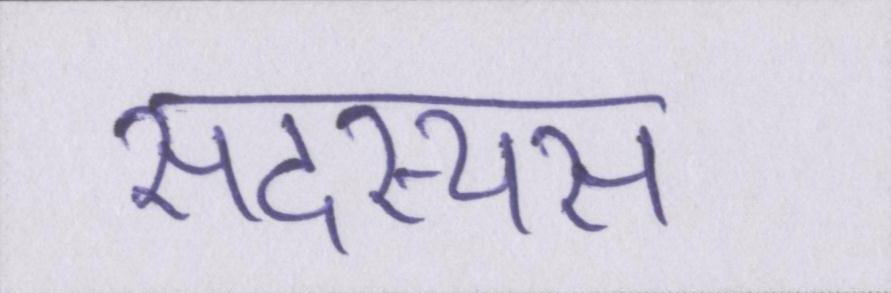 सदस्यस